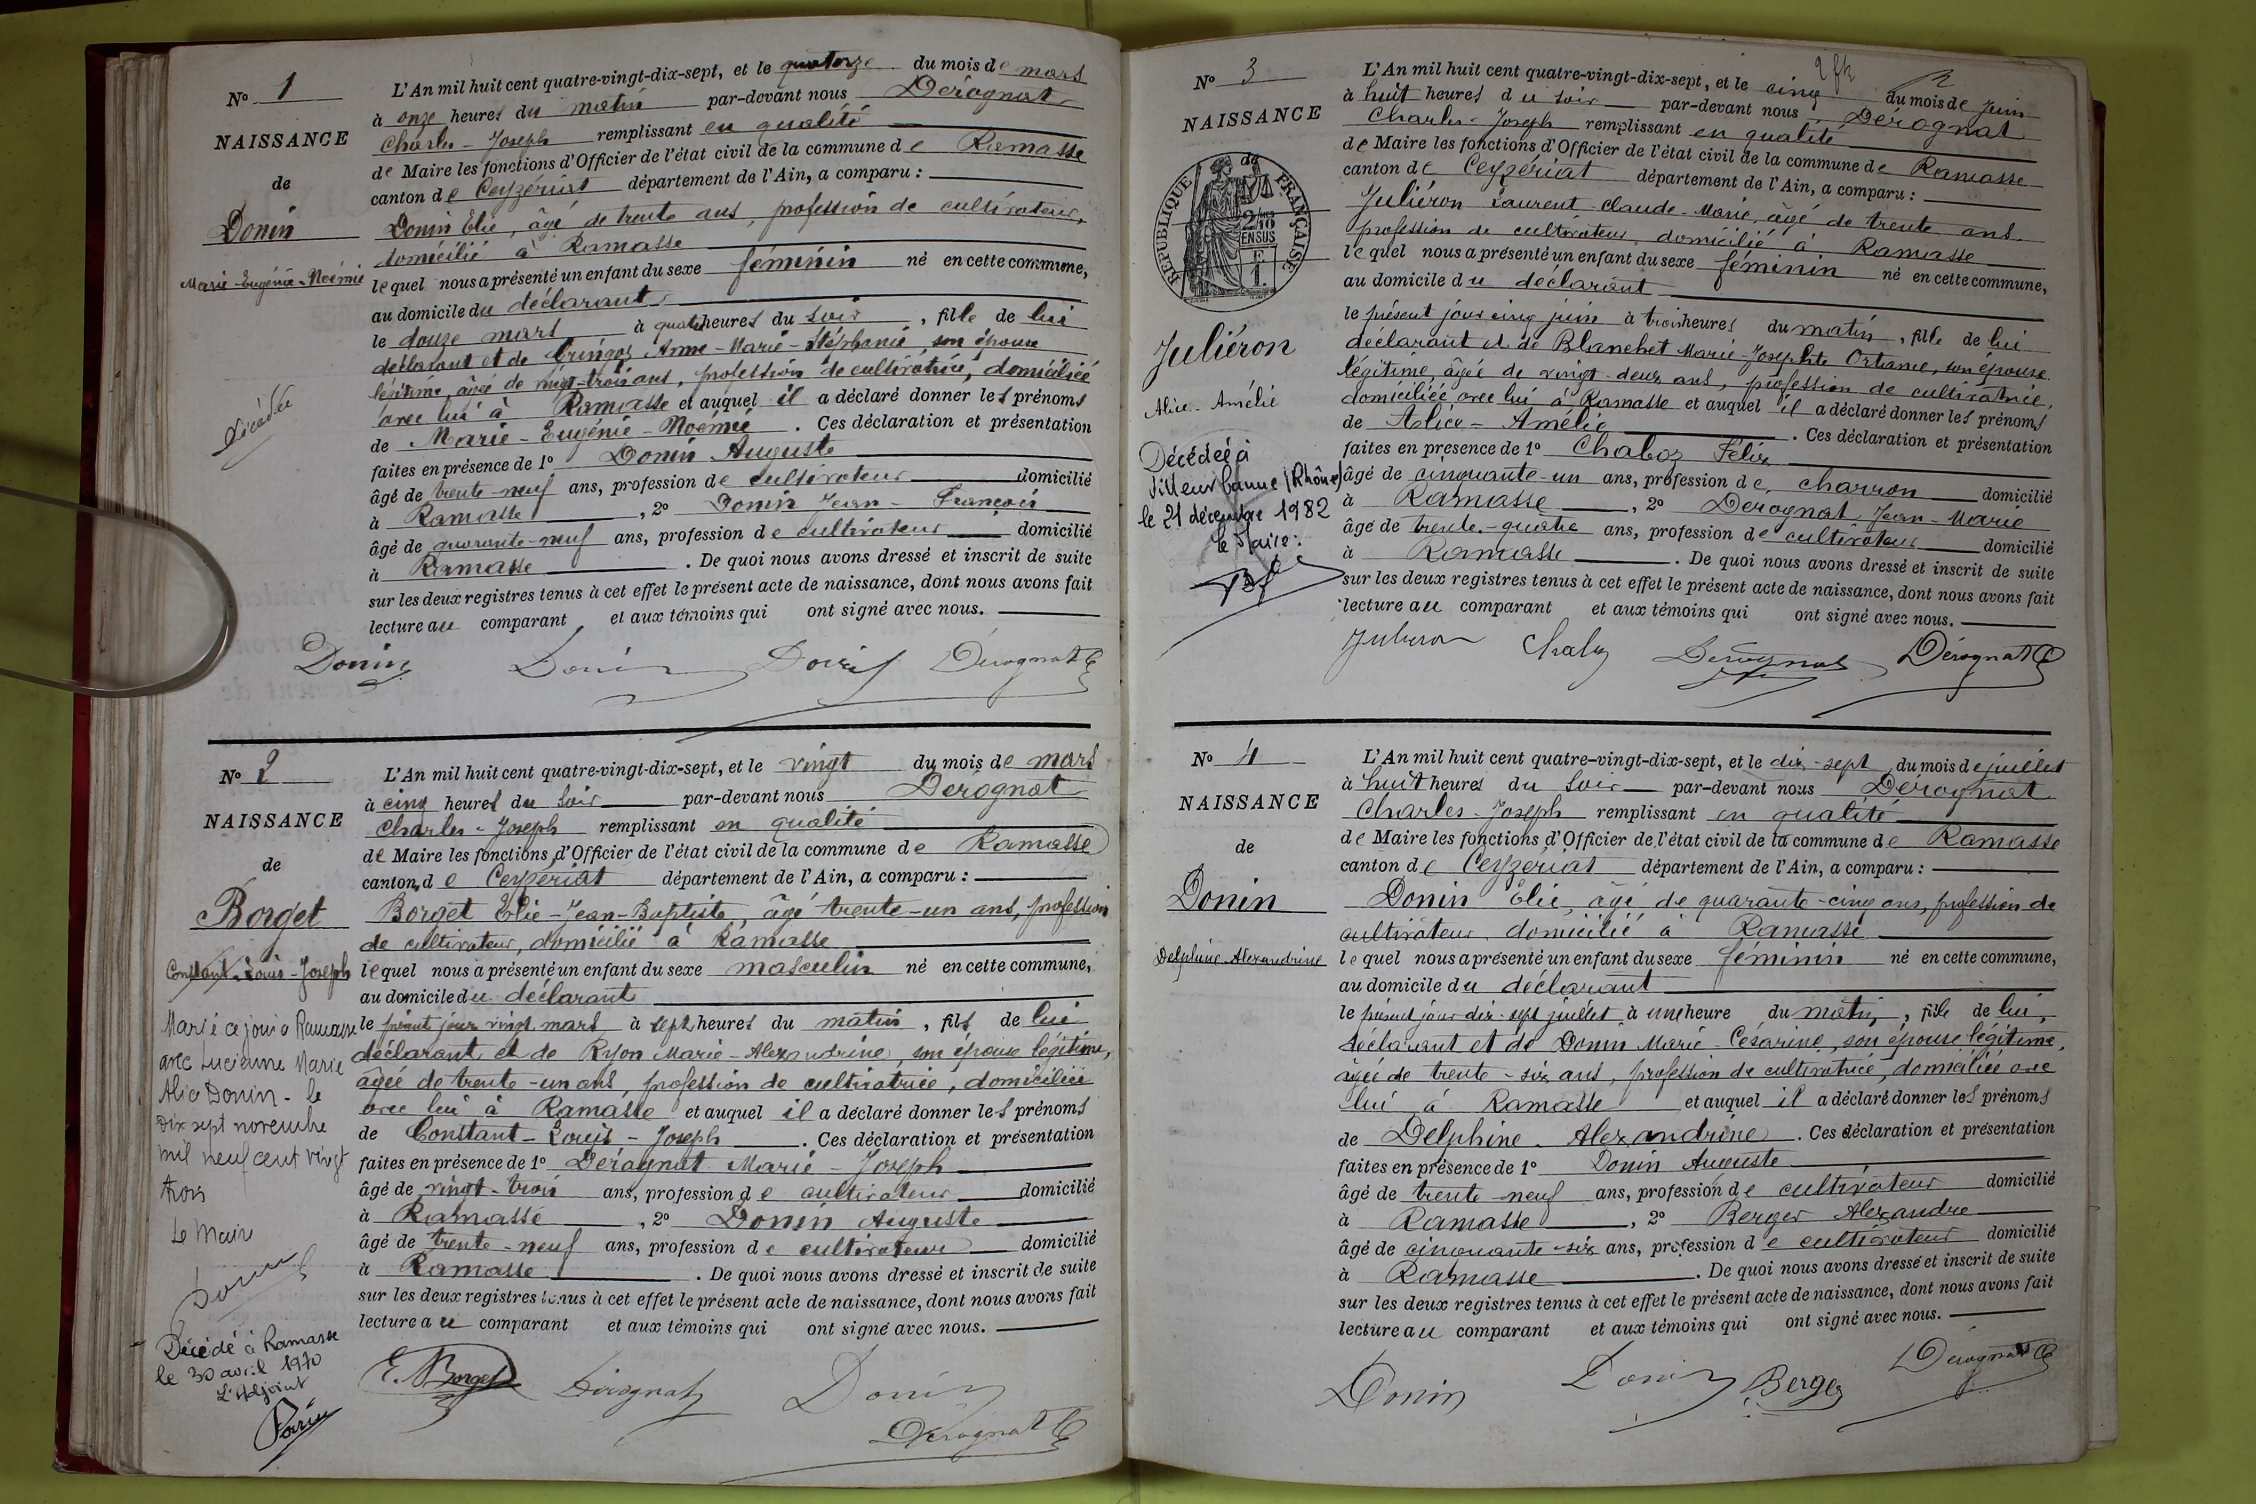 N° 1
NAISSANCE
de
Donin
Marie-Eugénie-Noémie
Décédée
L'An mil huit cent quatre-vingt-dix-sept, et le quatorze du mois de mars
à onze heures du matin par-devant nous Dérognat
Charles-Joseph remplissant en qualité
de Maire les fonctions d'Officier de l'état civil de la commune de Ramasse
canton de Ceyzériat département de l'Ain, a comparu :
Donin Elie, âgé de trente ans, profession de cultivateur,
domicilié à Ramasse
lequel nous a présenté un enfant du sexe féminin né en cette commune,
au domicile du déclarant
le douze mars à quatre heures du soir, fille de lui
déclarant et de Anne-Marie-Stéphanie, son épouse
légitime, âgée de vingt-trois ans, profession de cultivatrice, domiciliée
avec lui à Ramasse et auquel il a déclaré donner les prénoms
de Marie-Eugénie-Noémie. Ces déclaration et présentation
faites en présence de 1° Donin Auguste
âgé de trente-neuf ans, profession de cultivateur domicilié
à Ramasse, 2° Donin Jean-François
âgé de quarante-neuf ans, profession de cultivateur domicilié
à Ramasse. De quoi nous avons dressé et inscrit de suite
sur les deux registres tenus à cet effet le présent acte de naissance, dont nous avons fait
lecture au comparant et aux témoins qui ont signé avec nous.
Donin Donin Donin Dérognat
N° 2
NAISSANCE
de
Borget
Constant-Louis-Joseph
Marié ce jour à Ramasse
avec Lucienne Marie
Alice Donin - le
dix sept novembre
mil neuf cent vingt
trois
Le Maire
Décédé à Ramasse
le 30 avril 1970
L'Adjoint
L'An mil huit cent quatre-vingt-dix-sept, et le vingt du mois de mars
à cinq heures du soir par-devant nous Dérognat
Charles-Joseph remplissant en qualité
de Maire les fonctions d'Officier de l'état civil de la commune de Ramasse
canton de Ceyzériat département de l'Ain, a comparu :
Borget Elie-Jean-Baptiste, âgé trente-un ans, profession
de cultivateur, domicilié à Ramasse
lequel nous a présenté un enfant du sexe masculin né en cette commune,
au domicile du déclarant
le présent jour vingt mars à sept heures du matin, fils de lui
déclarant et de Ryon Marie-Alexandrine, son épouse légitime,
âgée de trente-un ans, profession de cultivatrice, domiciliée
avec lui à Ramasse et auquel il a déclaré donner les prénoms
de Constant-Louis-Joseph. Ces déclaration et présentation
faites en présence de 1° Dérognat Marie-Joseph
âgé de vingt-trois ans, profession de cultivateur domicilié
à Ramasse, 2° Donin Auguste
âgé de trente-neuf ans, profession de cultivateur domicilié
à Ramasse. De quoi nous avons dressé et inscrit de suite
sur les deux registres tenus à cet effet le présent acte de naissance, dont nous avons fait
lecture au comparant et aux témoins qui ont signé avec nous.
E. Borget Dérognat Donin
Dérognat
2
N° 3
NAISSANCE
de
RÉPUBLIQUE FRANÇAISE
2/10 EN SUS
Juliéron
Alice-Amélie
Décédée à
Villeurbanne (Rhône)
le 21 décembre 1982
le Maire :
L'An mil huit cent quatre-vingt-dix-sept, et le cinq du mois de juin
à huit heures du soir par-devant nous Dérognat
Charles-Joseph remplissant en qualité
de Maire les fonctions d'Officier de l'état civil de la commune de Ramasse
canton de Ceyzériat département de l'Ain, a comparu :
Juliéron Laurent-Claude-Marie, âgé de trente ans
profession de cultivateur, domicilié à Ramasse
lequel nous a présenté un enfant du sexe féminin né en cette commune,
au domicile du déclarant
le présent jour cinq juin à trois heures du matin, fille de lui
déclarant et de Blanchet Marie-Josephte Ortance, son épouse
légitime, âgée de vingt-deux ans, profession de cultivatrice,
domiciliée avec lui à Ramasse et auquel il a déclaré donner les prénoms
de Alice-Amélie. Ces déclaration et présentation
faites en présence de 1° Chaboz Félix
âgé de cinquante-un ans, profession de charron domicilié
à Ramasse, 2° Derognat Jean-Marie
âgé de trente-quatre ans, profession de cultivateur domicilié
à Ramasse. De quoi nous avons dressé et inscrit de suite
sur les deux registres tenus à cet effet le présent acte de naissance, dont nous avons fait
lecture au comparant et aux témoins qui ont signé avec nous.
Juliéron Chaboz Derognat Dérognat
N° 4
NAISSANCE
de
Donin
Delphine-Alexandrine
L'An mil huit cent quatre-vingt-dix-sept, et le dix-sept du mois de juillet
à huit heures du soir par-devant nous Dérognat
Charles-Joseph remplissant en qualité
de Maire les fonctions d'Officier de l'état civil de la commune de Ramasse
canton de Ceyzériat département de l'Ain, a comparu :
Donin Elie, âgé de quarante-cinq ans, profession de
cultivateur domicilié à Ramasse
lequel nous a présenté un enfant du sexe féminin né en cette commune,
au domicile du déclarant
le présent jour dix-sept juillet à une heure du matin, fille de lui,
déclarant et de Donin Marie-Césarine, son épouse légitime,
âgée de trente-six ans, profession de cultivatrice, domiciliée avec
lui à Ramasse et auquel il a déclaré donner les prénoms
de Delphine-Alexandrine. Ces déclaration et présentation
faites en présence de 1° Donin Auguste
âgé de trente-neuf ans, profession de cultivateur domicilié
à Ramasse, 2° Berger Alexandre
âgé de cinquante-six ans, profession de cultivateur domicilié
à Ramasse. De quoi nous avons dressé et inscrit de suite
sur les deux registres tenus à cet effet le présent acte de naissance, dont nous avons fait
lecture au comparant et aux témoins qui ont signé avec nous.
Donin Donin Berger Dérognat